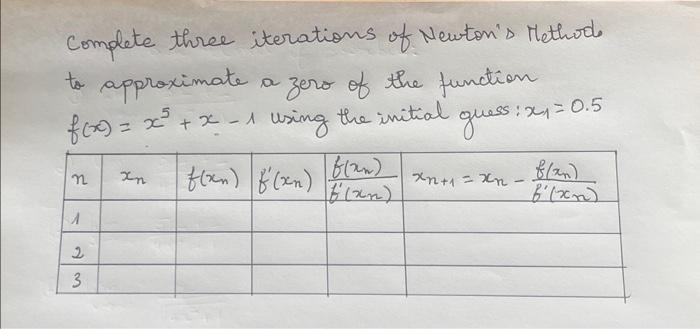 Complete three iterations of Newton's Method
to approximate a zero of the function
f(x) = x⁵ + x - 1 using the initial guess : x₁ = 0.5
n xₙ f(xₙ) f'(xₙ) f(xₙ)/f'(xₙ) xₙ₊₁ = xₙ - f(xₙ)/f'(xₙ)
1
2
3